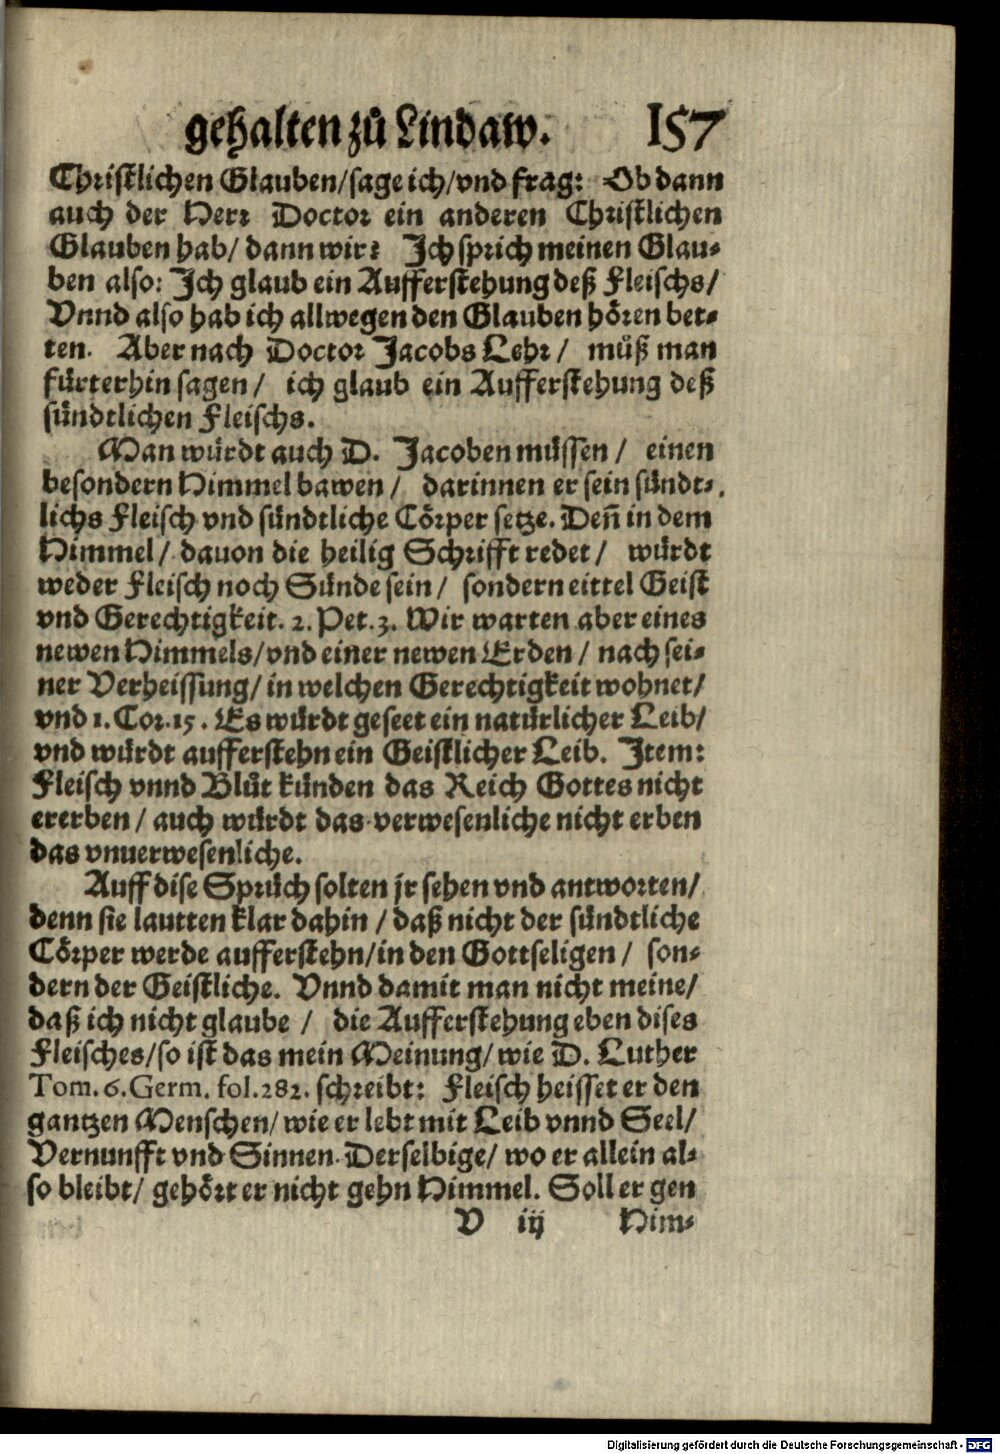 gehalten zů Lindaw. 157
Christlichen Glauben/sage ich/vnd frag: Ob dann
auch der Herr Doctor ein anderen Christlichen
Glauben hab/ dann wir? Ich sprich meinen Glau-
ben also: Ich glaub ein Aufferstehung deß Fleischs/
Vnnd also hab ich allwegen den Glauben hören bet-
ten. Aber nach Doctor Jacobs Lehr/ müß man
fürterhin sagen/ ich glaub ein Aufferstehung deß
sündtlichen Fleischs.
Man würdt auch D. Jacoben müssen/ einen
besondern Himmel bawen/ darinnen er sein sündt-
lichs Fleisch vnd sündtliche Cörper setze. Deñ in dem
Himmel/ dauon die heilig Schrifft redet/ würdt
weder Fleisch noch Sünde sein/ sondern eittel Geist
vnd Gerechtigkeit. 2. Pet. 3. Wir warten aber eines
newen Himmels/vnd einer newen Erden/ nach sei-
ner Verheissung/ in welchen Gerechtigkeit wohnet/
vnd 1. Cor. 15. Es würdt geseet ein natürlicher Leib/
vnd würdt aufferstehn ein Geistlicher Leib. Item:
Fleisch vnnd Blůt künden das Reich Gottes nicht
ererben/ auch würdt das verwesenliche nicht erben
das vnuerwesenliche.
Auff dise Sprüch solten jr sehen vnd antworten/
denn sie lautten klar dahin/ daß nicht der sündtliche
Cörper werde aufferstehn/in den Gottseligen/ son-
dern der Geistliche. Vnnd damit man nicht meine/
daß ich nicht glaube/ die Aufferstehung eben dises
Fleisches/so ist das mein Meinung/ wie D. Luther
Tom. 6. Germ. fol. 282. schreibt: Fleisch heisset er den
gantzen Menschen/ wie er lebt mit Leib vnnd Seel/
Vernunfft vnd Sinnen. Derselbige/ wo er allein al-
so bleibt/ gehört er nicht gehn Himmel. Soll er gen
V iij Him-
Digitalisierung gefördert durch die Deutsche Forschungsgemeinschaft - DFG